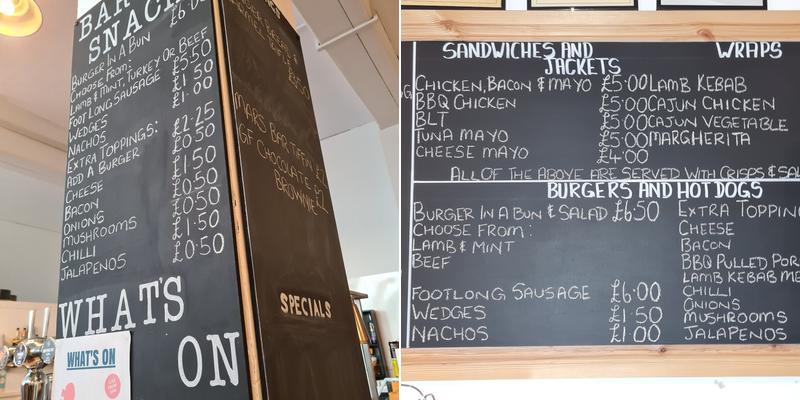 BAR
SNACK
BURGER IN A BUN £6.00
CHOOSE FROM:
LAMB & MINT, TURKEY OR BEEF
FOOT LONG SAUSAGE £5.50
WEDGES £1.50
NACHOS £1.00
EXTRA TOPPINGS:
ADD A BURGER £2.25
CHEESE £0.50
BACON £1.50
ONIONS £0.50
MUSHROOMS £0.50
CHILLI £1.50
JALAPENOS £0.50
WHAT'S
ON
WHAT'S ON
MARS BAR TIFFIN £2
GF CHOCOLATE £2
BROWNIE
SPECIALS
SANDWICHES AND WRAPS
JACKETS
CHICKEN, BACON & MAYO £5.00 LAMB KEBAB
BBQ CHICKEN £5.00 CAJUN CHICKEN
BLT £5.00 CAJUN VEGETABLE
TUNA MAYO £5.00 MARGHERITA
CHEESE MAYO £4.00
ALL OF THE ABOVE ARE SERVED WITH CRISPS & SAL
BURGERS AND HOT DOGS
BURGER IN A BUN & SALAD £6.50 EXTRA TOPPIN
CHOOSE FROM: CHEESE
LAMB & MINT BACON
BEEF BBQ PULLED POR
LAMB KEBAB ME
FOOTLONG SAUSAGE £6.00 CHILLI
ONIONS
WEDGES £1.50 MUSHROOMS
NACHOS £1.00 JALAPENOS